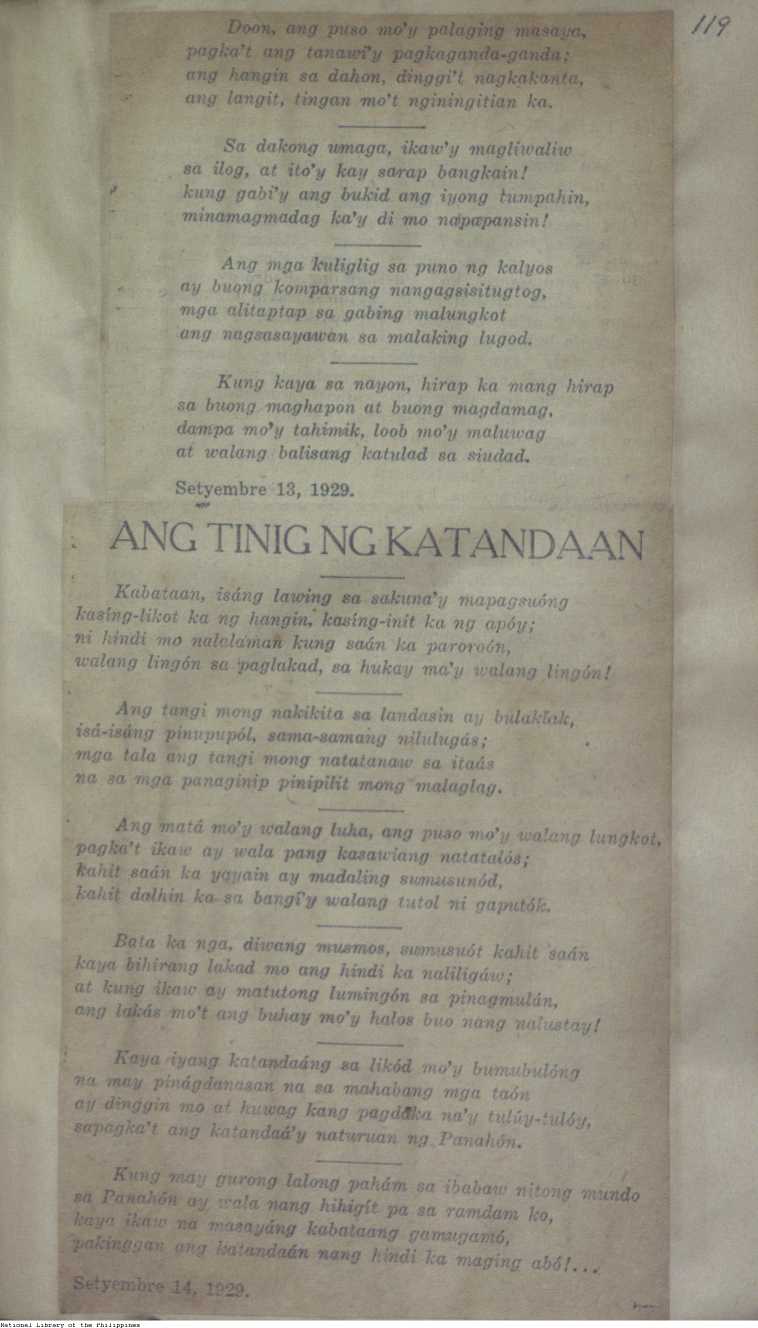 119
Doon, ang puso mo'y palaging masaya,
pagka't ang tanawi'y pagkaganda-ganda;
ang hangin sa dahon, dinggi't nagkakanta,
ang langit, tingan mo't nginingitian ka.
Sa dakong umaga, ikaw'y magliwaliw
sa ilog, at ito'y kay sarap bangkain!
kung gabi'y ang bukid ang iyong tumpahin,
minamagmadag ka'y di mo napapansin!
Ang mga kuliglig sa puno ng kalyos
ay buong komparsang nangagsisitugtog,
mga alitaptap sa gabing malungkot
ang nagsasayawan sa malaking lugod.
Kung kaya sa nayon, hirap ka mang hirap
sa buong maghapon at buong magdamag,
dampa mo'y tahimik, loob mo'y maluwag
at walang balisang katulad sa siudad.
Setyembre 13, 1929.
ANG TINIG NG KATANDAAN
Kabataan, isáng lawing sa sakuna'y mapagsuóng
kasíng-likot ka ng hangin, kasíng-init ka ng apóy;
ni hindi mo nalalaman kung saán ka paroroón,
walang lingón sa paglakad, sa hukay ma'y walang lingón!
Ang tangi mong nakikita sa landasin ay bulaklak,
isá-isáng pinupupól, sama-samang nilulugás;
mga tala ang tangi mong natatanaw sa itaás
na sa mga panaginip pinipilit mong malaglag.
Ang matá mo'y walang luha, ang puso mo'y walang lungkot,
pagka't ikaw ay wala pang kasawiang natatalós;
kahit saán ka yayain ay madaling sumusunód,
kahit dalhin ka sa bangi'y walang tutol ni gaputók.
Bata ka nga, diwang musmos, sumusuót kahit saán
kaya bihirang lakad mo ang hindi ka naliligáw;
at kung ikaw ay matutong lumingón sa pinagmulán,
ang lakás mo't ang buhay mo'y halos buo nang nalustay!
Kaya iyang katandaáng sa likód mo'y bumubulóng
na may pinágdanasan na sa mahabang mga taón
ay dinggin mo at huwag kang pagdaka na'y tulúy-tulóy,
sapagka't ang katandaá'y naturuan ng Panahón.
Kung may gurong lalong pahám sa ibabaw nitong mundo
sa Panahón ay wala nang hihigít pa sa ramdam ko,
kaya ikaw na masayáng kabataang gamugamó,
pakinggan ang katandaán nang hindi ka maging abó!...
Setyembre 14, 1929.
National Library of the Philippines